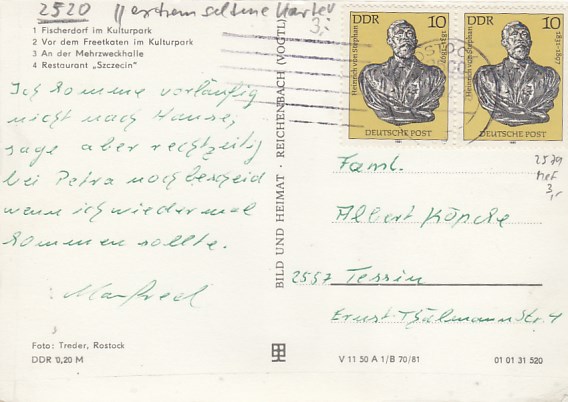 2520 // extrem seltene Karte
3,-
1 Fischerdorf im Kulturpark
2 Vor dem Freetkaten im Kulturpark
3 An der Mehrzweckhalle
4 Restaurant „Szczecin"
Ich komme vorläufig
nicht nach Hause,
sage aber rechtzeitig
bei Petra noch bescheid
wenn ich wieder mal
kommen sollte.
Manfred
Foto: Treder, Rostock
DDR 0,20 M
BILD UND HEIMAT · REICHENBACH (VOGTL)
DDR 10
Heinrich von Stephan
1831-1897
DEUTSCHE POST
1981
DDR 10
Heinrich von Stephan
1831-1897
DEUTSCHE POST
1981
2579
3,-
Faml.
Albert Köpcke
2557 Tessin
Ernst-Thälmann Str. 4
V 11 50 A 1/B 70/81
01 01 31 520